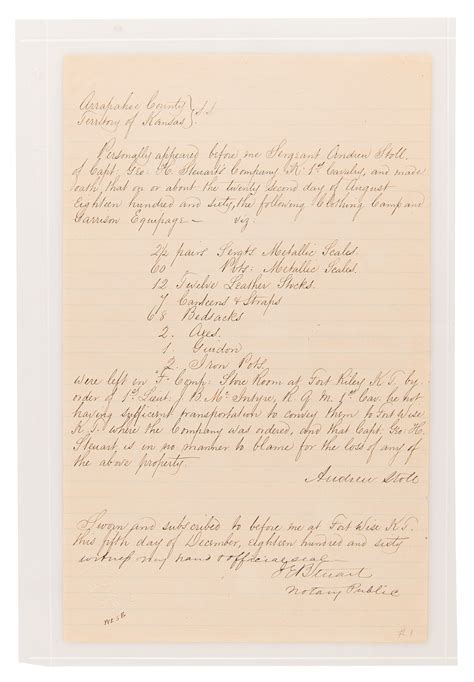 Arrapahoe County } S.S.
Territory of Kansas }
Personally appeared before me Sergeant Andrew Stoll
of Capt: Geo: H. Steuart's Company "K" 1st Cavalry, and made
oath, that on or about the twenty second day of August
Eighteen hundred and sixty, the following Clothing Camp and
Garrison Equipage — viz:
2½ pairs Sergts Metallic Scales.
60 Pvts: Metallic Scales.
12 Twelve Leather Stocks.
7 Canteens & Straps
68 Bedsacks
2. Axes.
1. Guidon
2 Iron Pots.
were left in "F" Comp: Store Room at Fort Riley K.T. by
order of 1st Lieut: J. B. McIntyre, R Q M. 1st Cav. he not
having sufficient transportation to convey them to Fort Wise
K.T. where the Company was ordered, and that Capt, Geo: H.
Steuart is in no manner to blame for the loss of any of
the above property.
Andrew Stoll
Sworn and subscribed to before me at Fort Wise K.T.
this fifth day of December, eighteen hundred and sixty
witness my hand & official seal
J E B Stuart
Notary Public